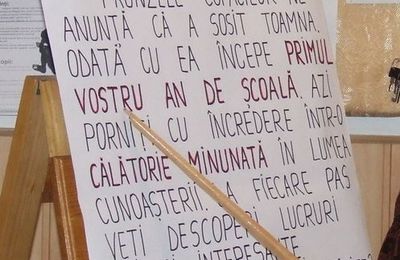 FRUNZELE COPACILOR NE
ANUNȚĂ CĂ A SOSIT TOAMNA.
ODATĂ CU EA ÎNCEPE PRIMUL
VOSTRU AN DE ȘCOALĂ. AZI
PORNIȚI CU ÎNCREDERE ÎNTR-O
CĂLĂTORIE MINUNATĂ ÎN LUMEA
CUNOAȘTERII. LA FIECARE PAS
VEȚI DESCOPERI LUCRURI
INTERESANTE